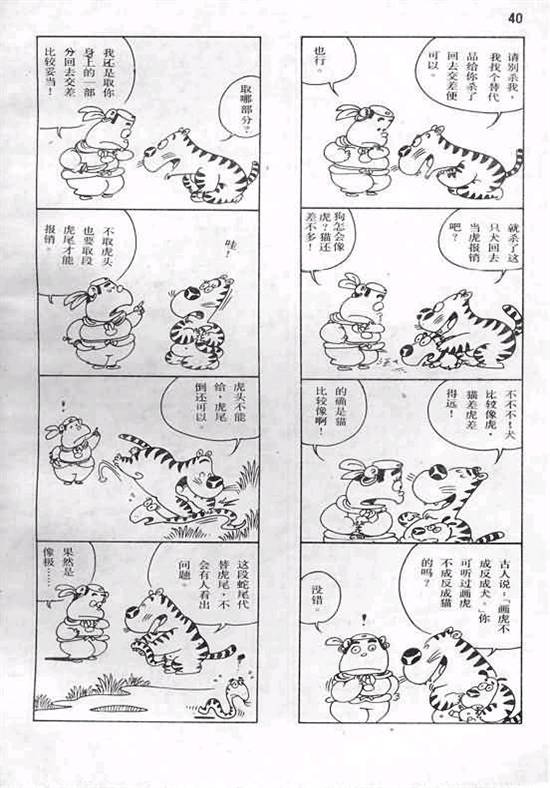 40
请别杀我，
我找个替代
品给你杀了
回去交差便
可以。
也行。
就杀了这
只犬回去
当虎报销
吧？
狗怎会像
虎？猫还
差不多！
不不不！犬
比较像虎，
猫差虎差
得远！
的确是猫
比较像啊！
古人说：「画虎不
成反成犬。」你
可听过画虎
不成反成猫
的吗？
!
没错。
我还是取你
身上的一部
分回去交差
比较妥当！
取哪部分？
不取虎头
也要取段
虎尾才能
报销。
哇！
虎头不能
给，虎尾
倒还可以。
!
这段蛇尾代
替虎尾，不
会有人看出
问题。
果然是
像极……